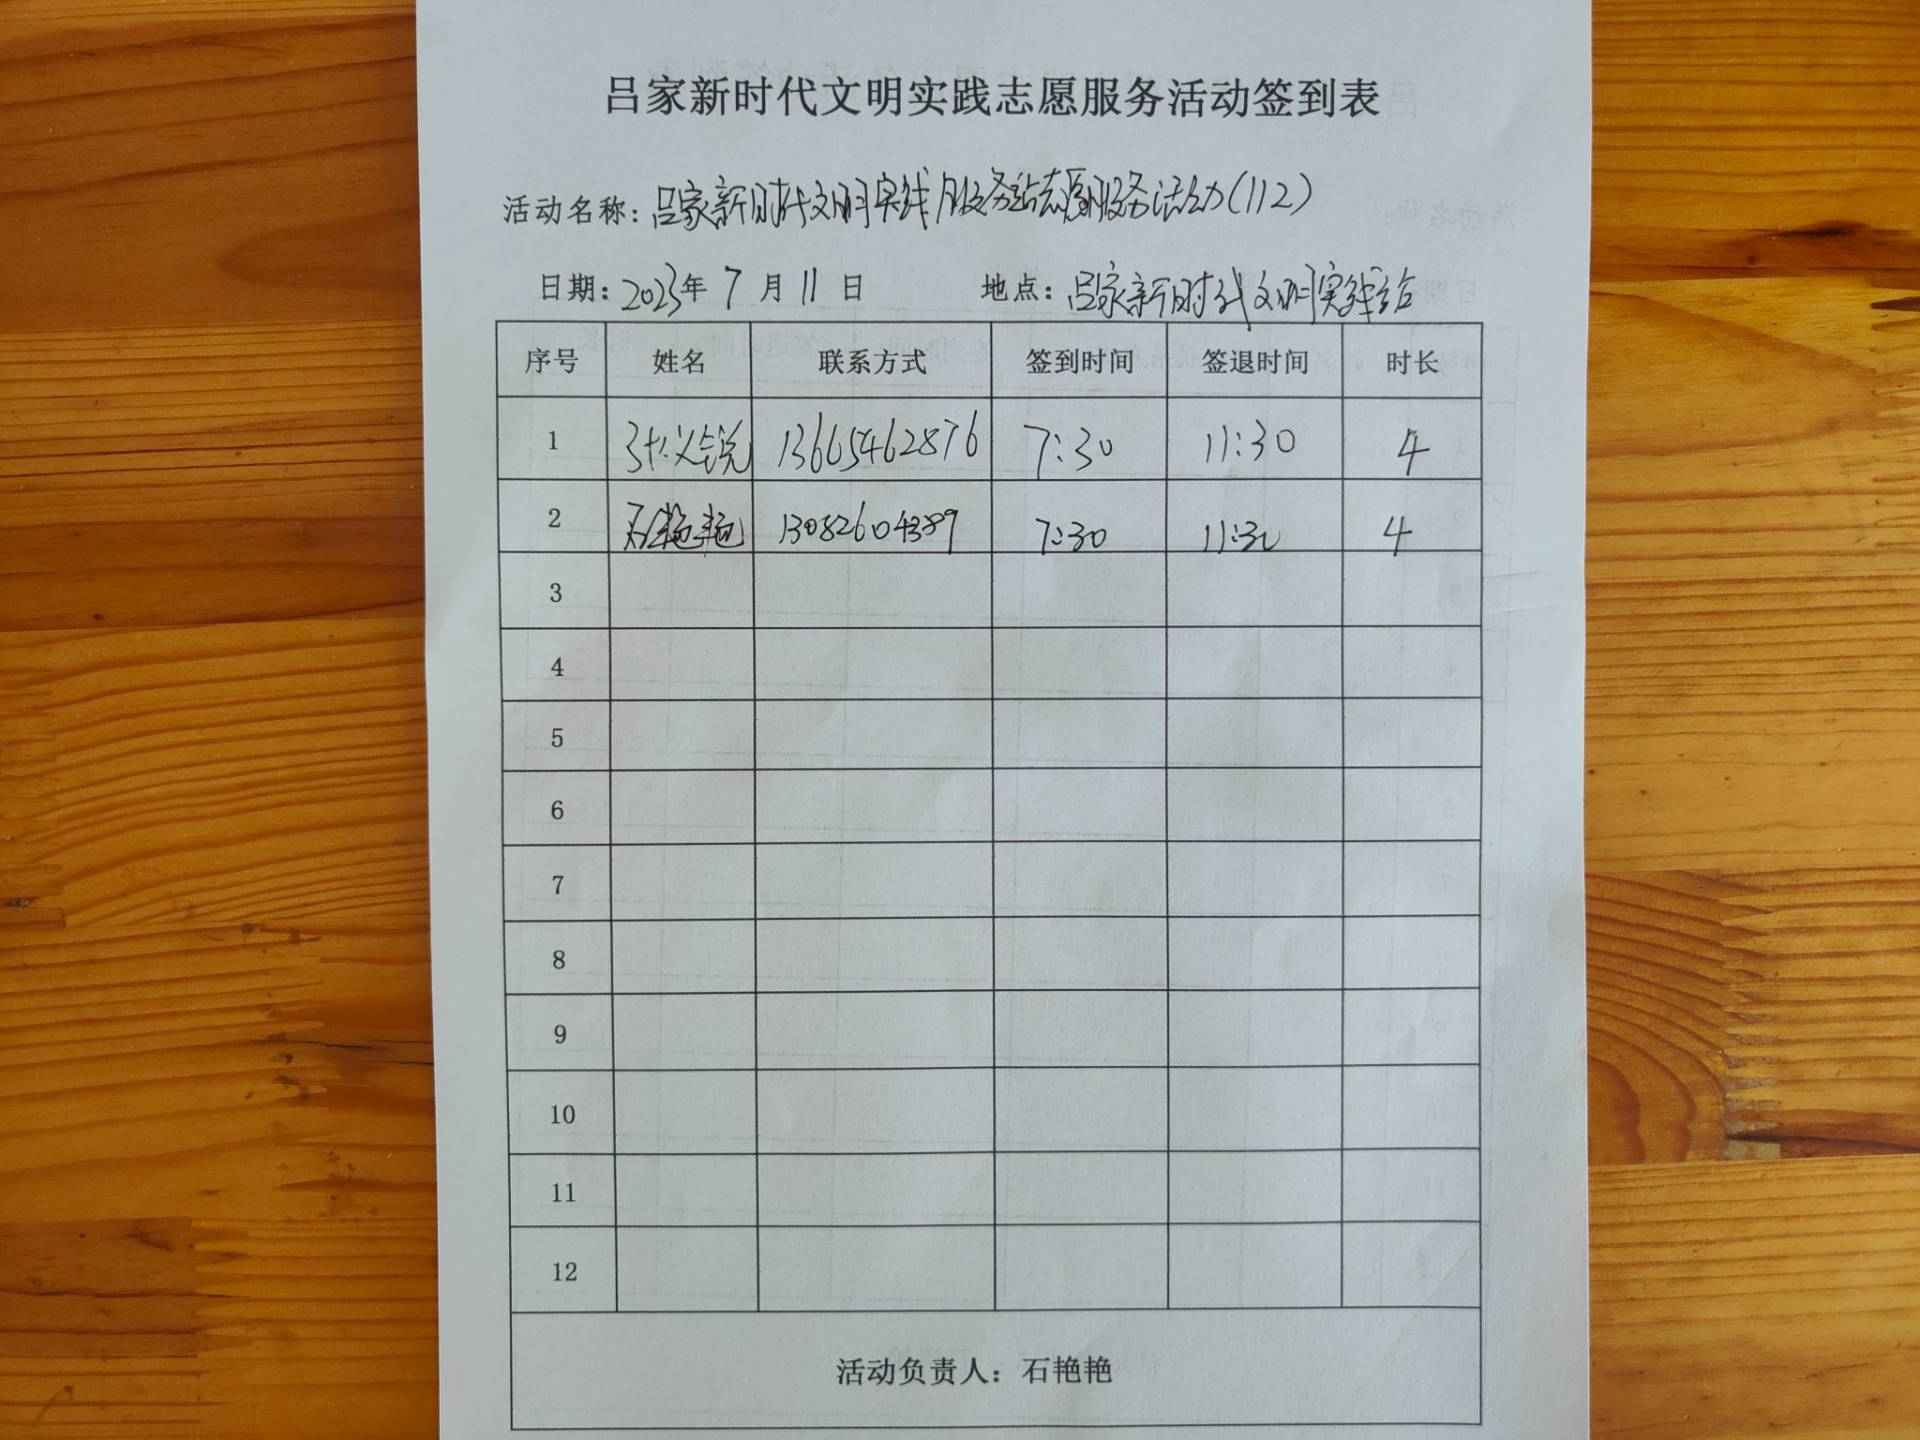 吕家新时代文明实践志愿服务活动签到表
活动名称：吕家新时代文明实践服务站志愿服务活动(112)
日期：2023年 7 月 11 日 地点：吕家新时代文明实践站
序号 姓名 联系方式 签到时间 签退时间 时长
1 13665462876 7:30 11:30 4
2 石艳艳 13082604389 7:30 11:30 4
3
4
5
6
7
8
9
10
11
12
活动负责人：石艳艳